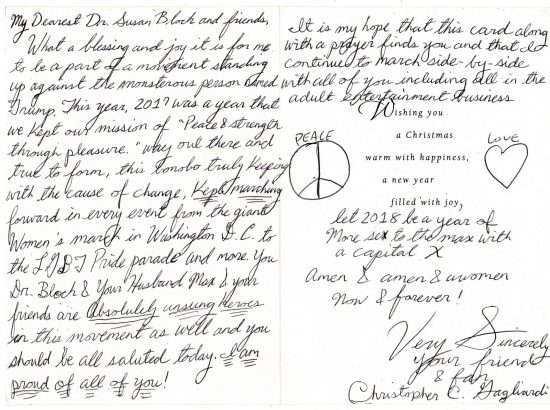 My Dearest Dr. Susan Block and friends,
What a blessing and joy it is for me
to be a part of a movement standing
up against the monsterous person named
Trump. This year, 2017 was a year that
we kept our mission of "Peace & strength
through pleasure." way out there and
true to form, this bonobo truly keeping
with the cause of change, Kept marching
forward in every event from the giant
Women's march in Washington D.C. to
the LGBT Pride parade and more. You
Dr. Block & Your Husband Max & your
friends are Absolutely unsung heroes
in this movement as well and you
should be all saluted today. I am
proud of all of you!
It is my hope that this card along
with a prayer finds you and that I
continue to march side-by-side
with all of you including all in the
adult entertainment business
PEACE
Wishing you
a Christmas
warm with happiness,
a new year
filled with joy,
LOVE
let 2018 be a year of
More sex to the max with
a capital X
Amen & amen & awomen
Now & forever!
Very Sincerely
Your friend
& fan
Christopher C. Gagliardi